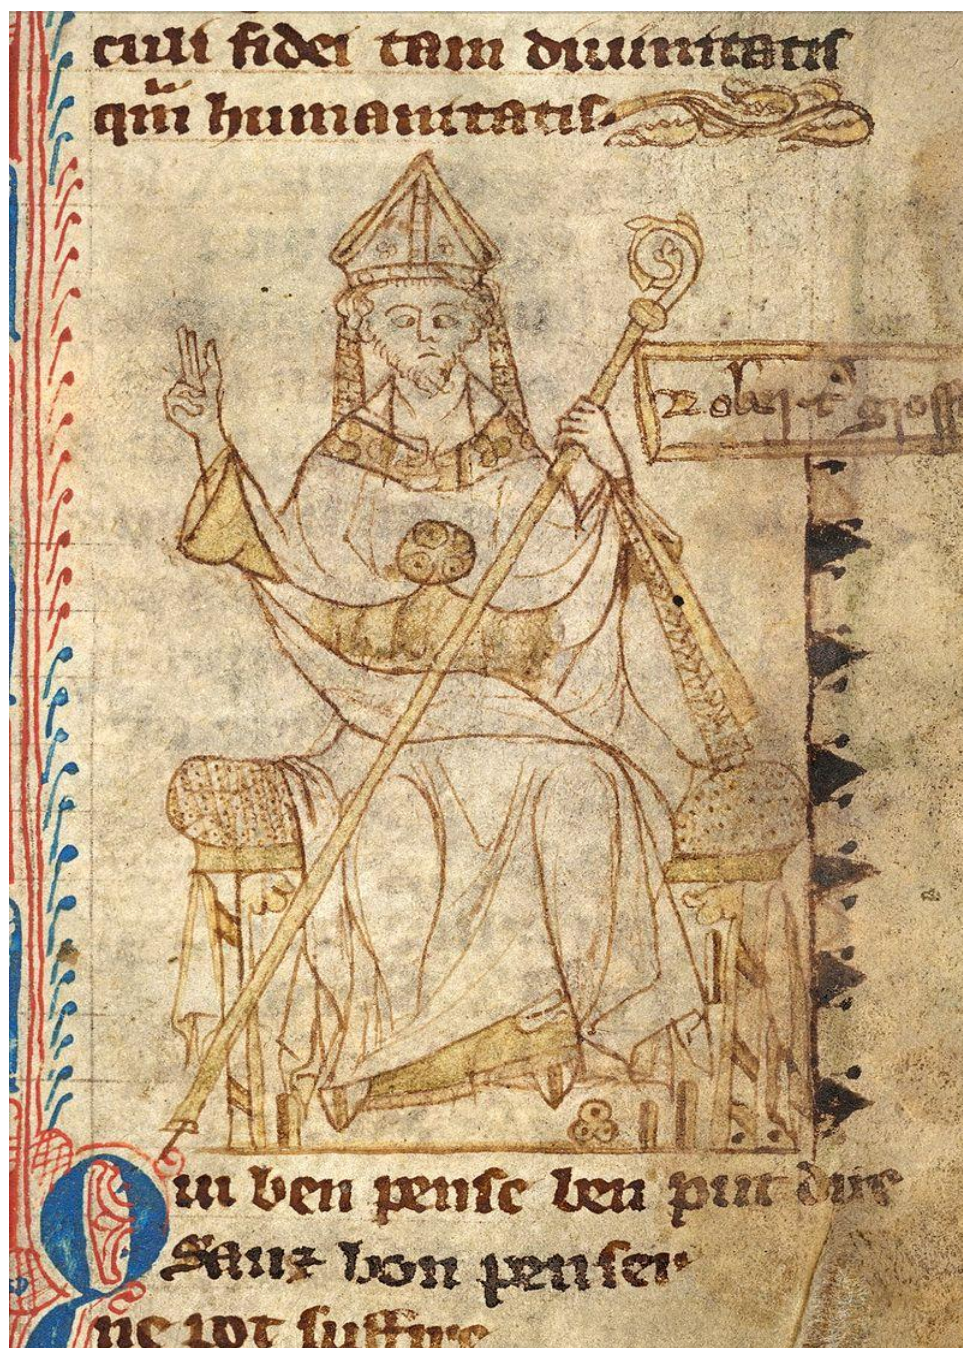 culi fidei tam diuinitatis
qm̃ humanitatis.
Robert̾ gross
Qui ben pense ben puit dire
Sanz bon penser
ne pot suffire